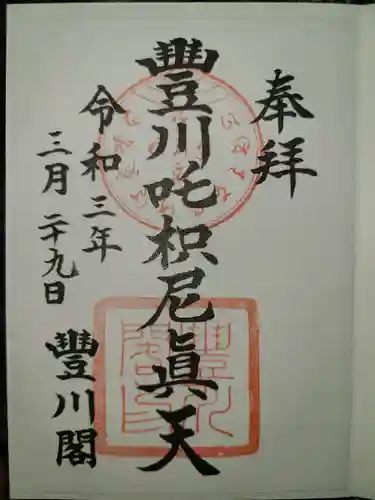 奉拜
豐川吒枳尼眞天
令和三年
三月二十九日
豐川閣